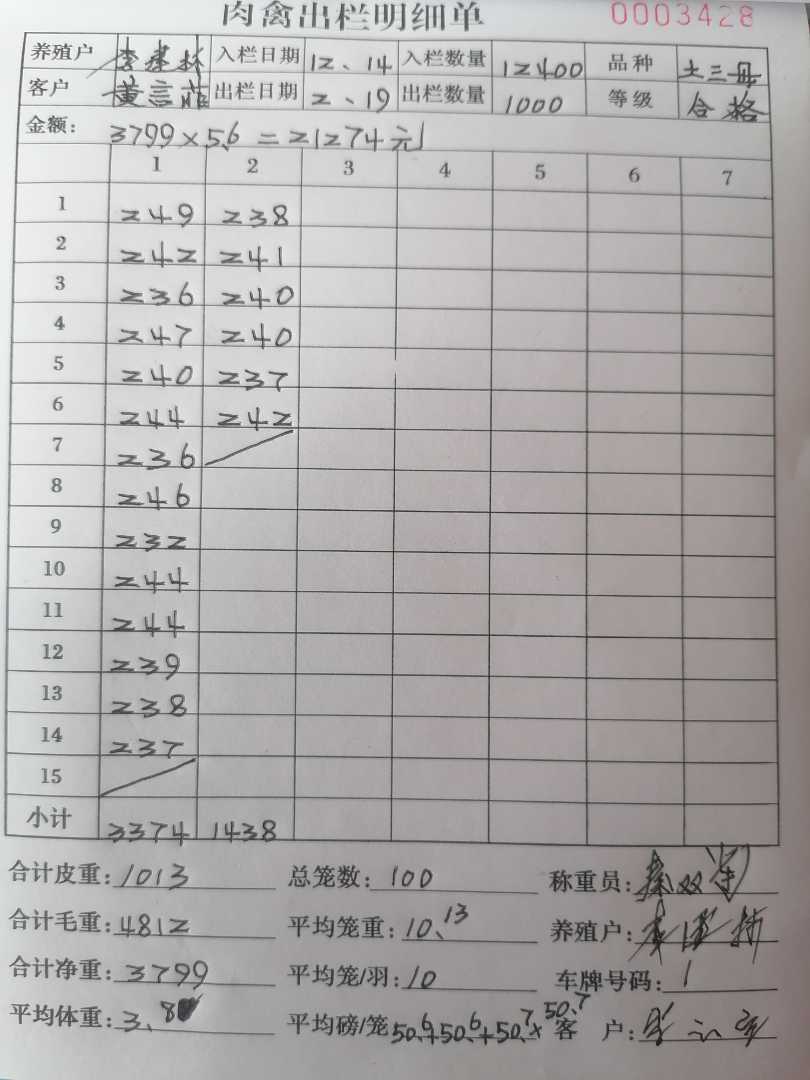 肉禽出栏明细单 0003428
养殖户 李建林 入栏日期 12、14 入栏数量 12400 品种 土三母
客户 黄言雄 出栏日期 2、19 出栏数量 1000 等级 合格
金额: 3799×5.6=21274元
1 2 3 4 5 6 7
1 249 238
2 242 241
3 236 240
4 247 240
5 240 237
6 244 242
7 236
8 246
9 232
10 244
11 244
12 239
13 238
14 237
15
小计 3374 1438
合计皮重: 1013 总笼数: 100 称重员:
合计毛重: 4812 平均笼重: 10、13 养殖户:
合计净重: 3799 平均笼/羽: 10 车牌号码: /
平均体重: 3、8 平均磅/笼 50.6+50.6+50.7×50.7 客 户: